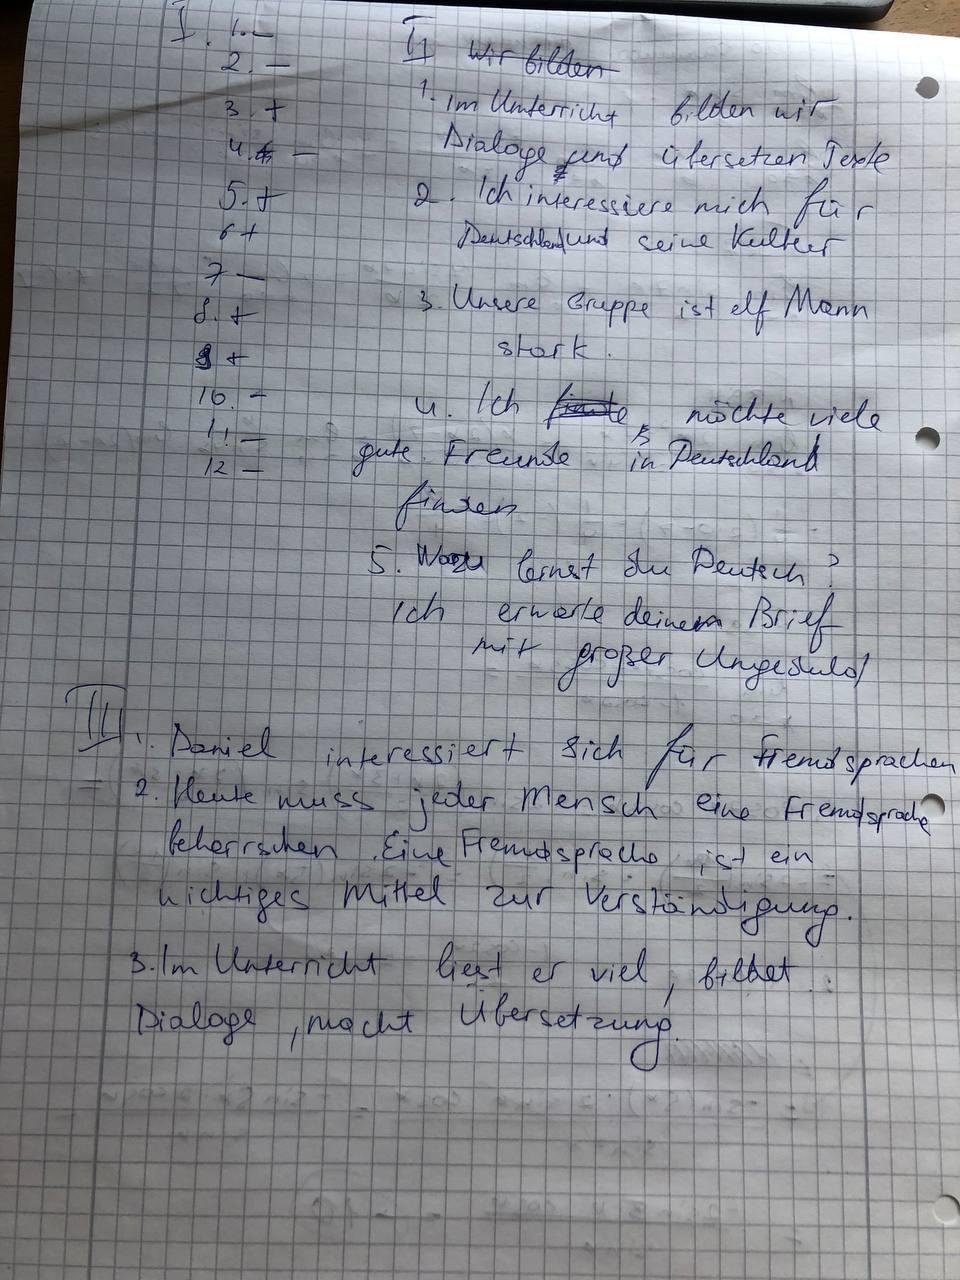 I. 1. –
2. –
3. +
4. –
5. +
6 +
7 –
8. +
9 +
10. –
11 –
12 –
II wir bilden
1. Im Unterricht bilden wir
Dialoge und übersetzen Texte
2. Ich interessiere mich für
Deutschland und seine Kultur
3. Unsere Gruppe ist elf Mann
stark.
4. Ich möchte viele
gute Freunde in Deutschland
finden
5. Wozu lernst du Deutsch?
Ich erwarte deinen Brief
mit großer Ungeduld
III
1. Daniel interessiert sich für Fremdsprachen
2. Heute muss jeder Mensch eine Fremdsprache
beherrschen. Eine Fremdsprache ist ein
wichtiges Mittel zur Verständigung.
3. Im Unterricht liest er viel, bildet
Dialoge, macht Übersetzung.